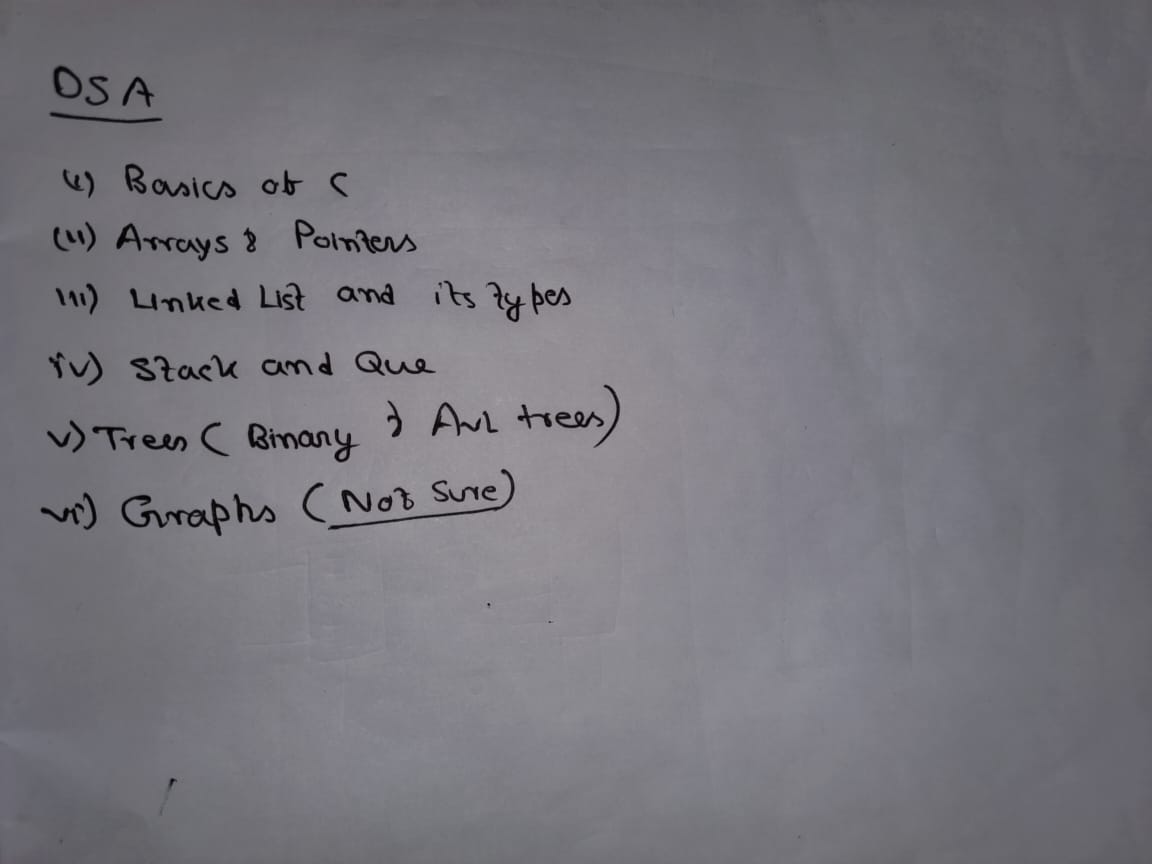 DSA
(i) Basics of C
(ii) Arrays & Pointers
iii) Linked List and its types
iv) Stack and Que
v) Trees ( Binary & AVL trees)
vi) Graphs (Not Sure)